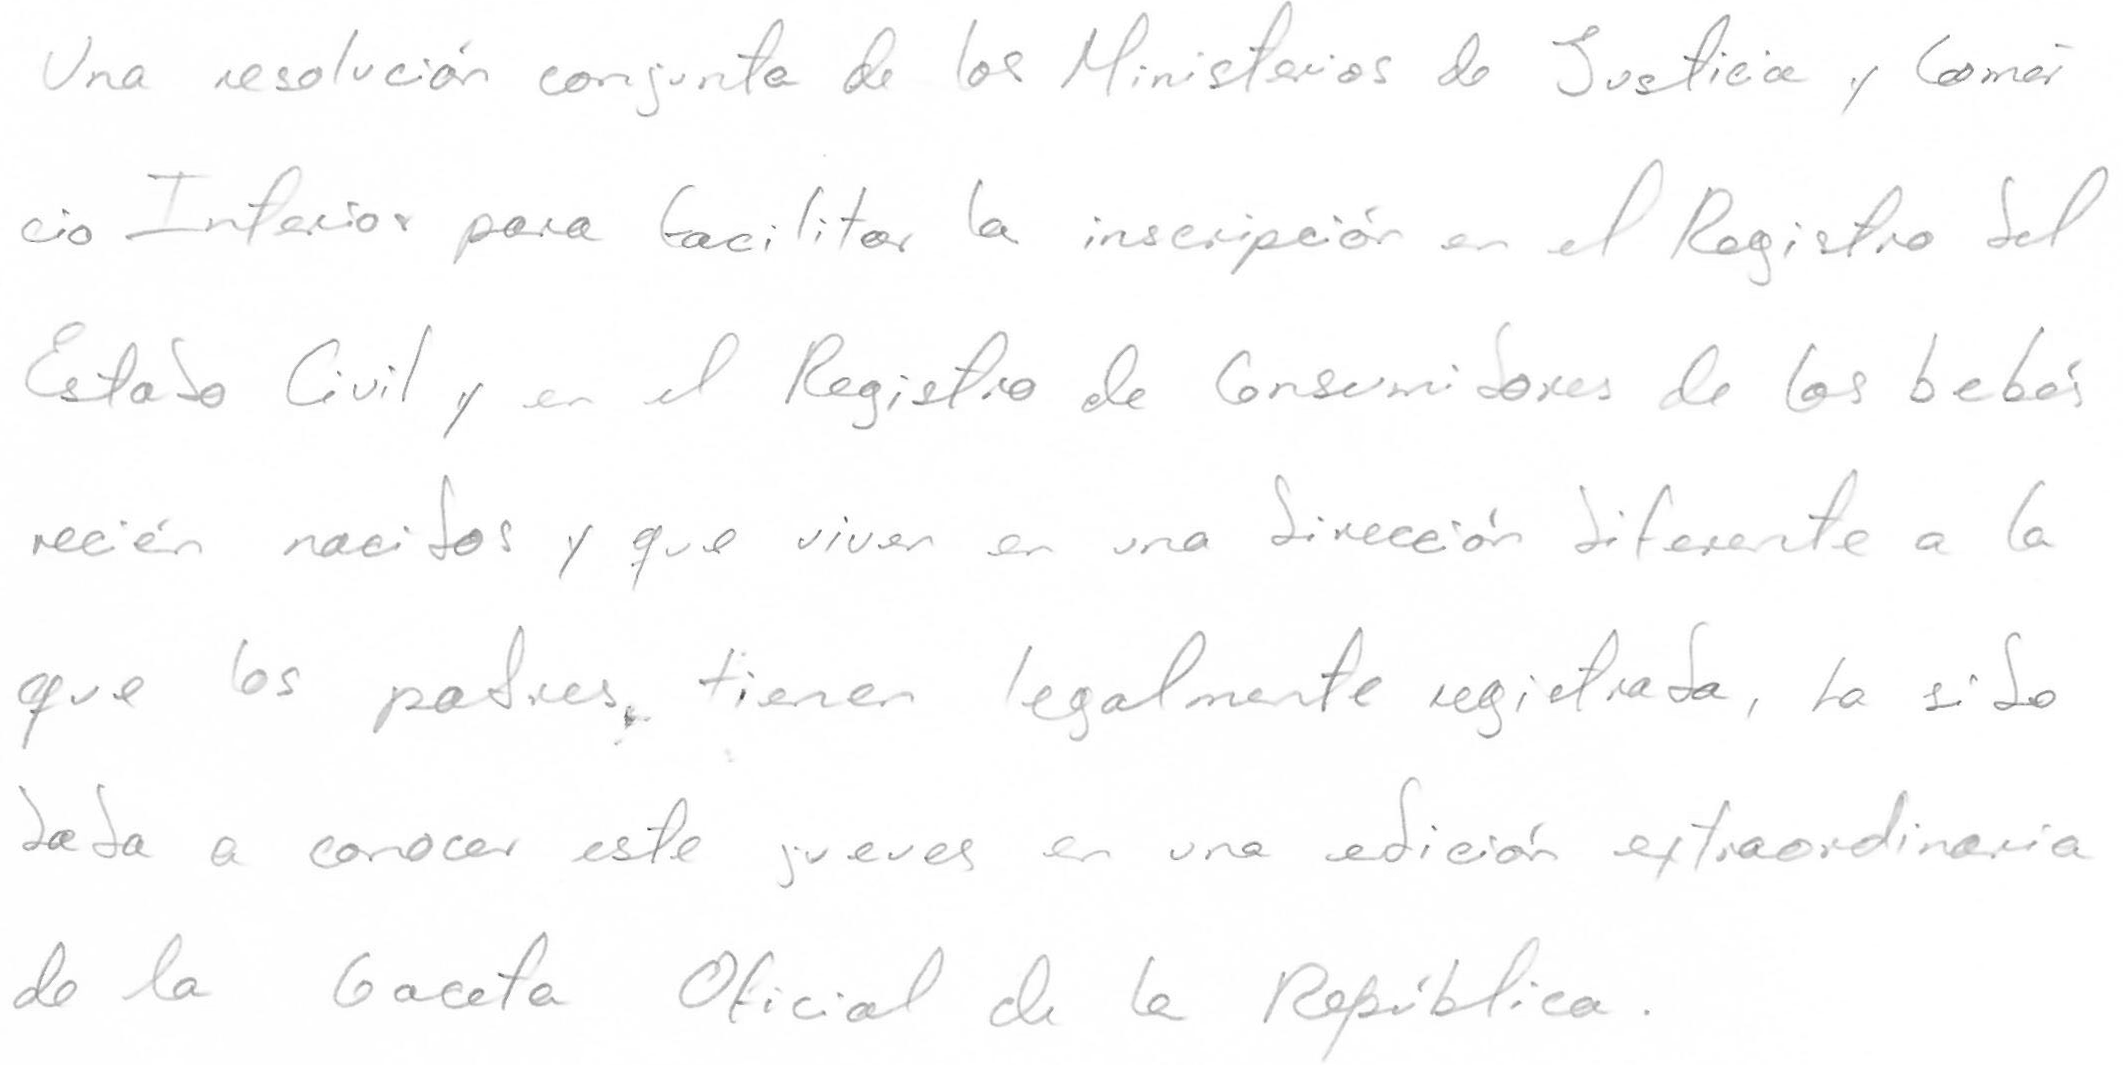 Una resolución conjunta de los Ministerios de Justicia y Comer
cio Interior para facilitar la inscripción en el Registro del
Estado Civil y en el Registro de Consumidores de los bebés
recién nacidos y que viven en una dirección diferente a la
que los padres, tienen legalmente registrada, ha sido
dada a conocer este jueves en una edición extraordinaria
de la Gaceta Oficial de la República.